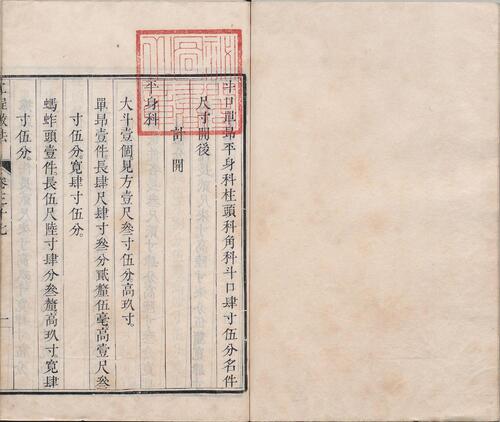 斗口單昂平身科柱頭科角科斗口肆寸伍分名件
尺寸開後
計開
平身科
大斗壹個見方壹尺叁寸伍分高玖寸。
單昂壹件長肆尺肆寸叁分貳釐伍毫高壹尺叁
寸伍分寬肆寸伍分。
螞蚱頭壹件長伍尺陸寸肆分叁釐高玖寸寬肆
寸伍分。
工程做法
卷三十七
一